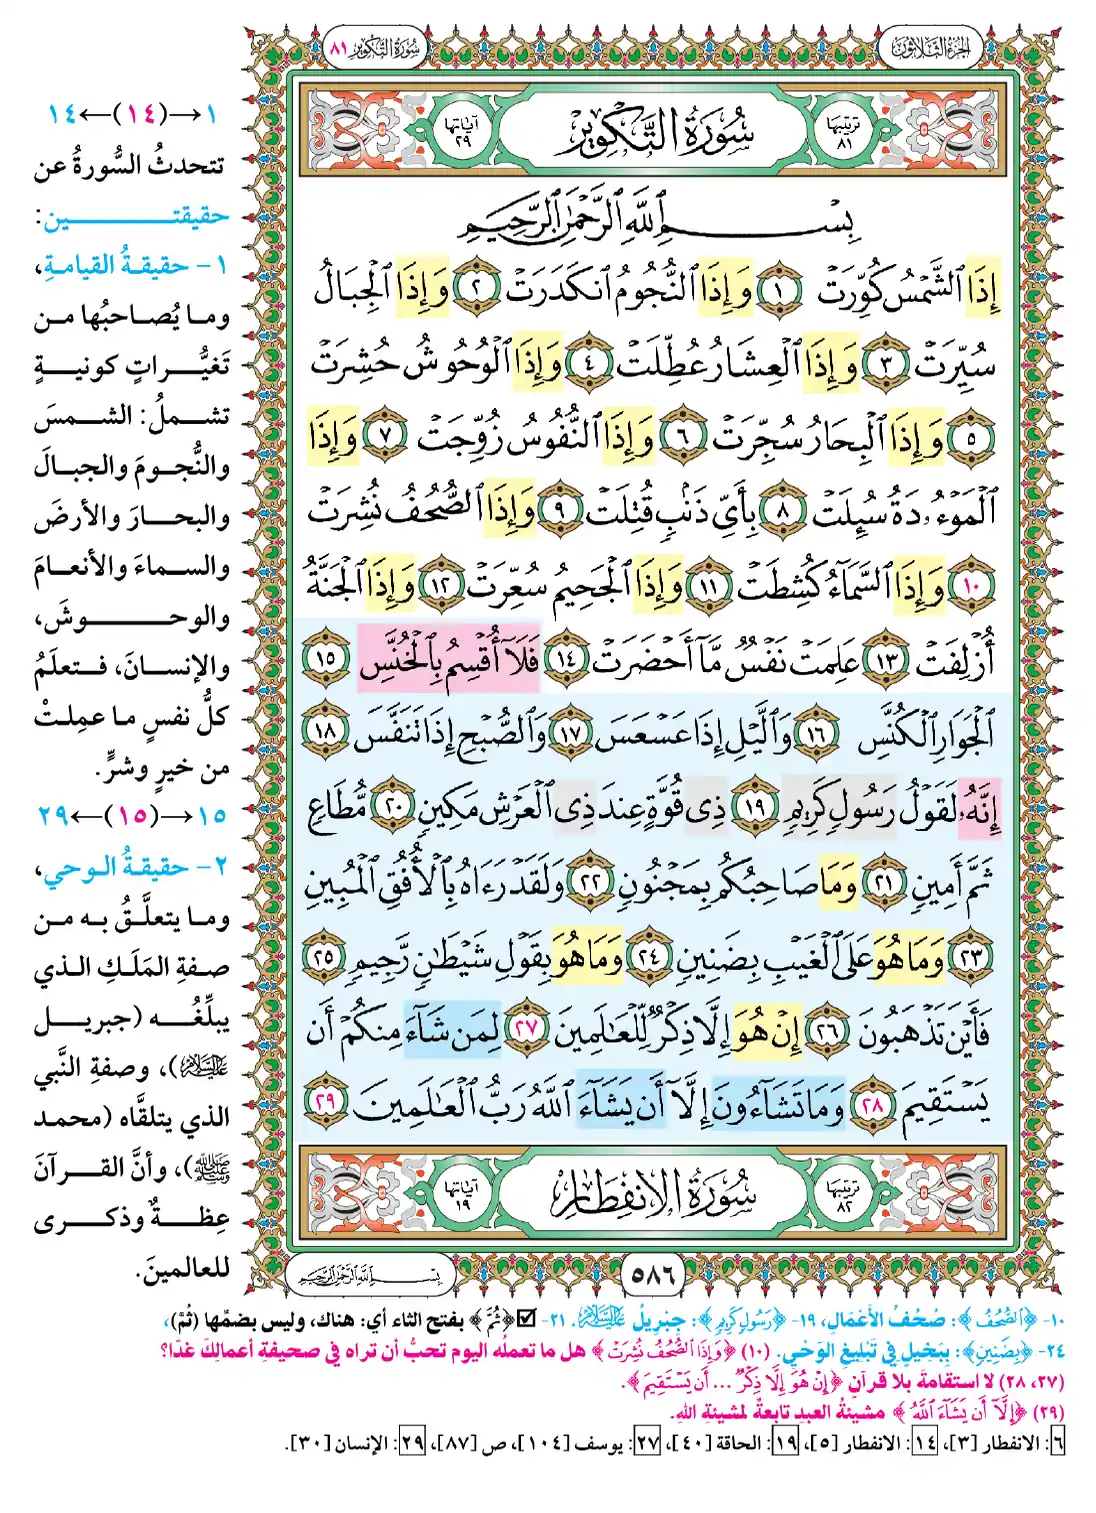 الجزء الثلاثون
سورة التكوير ٨١
ترتيبها ٨١
سُورَةُ التَّكْوِير
آياتها ٢٩
بِسْمِ اللَّهِ الرَّحْمَٰنِ الرَّحِيمِ
إِذَا الشَّمْسُ كُوِّرَتْ ١ وَإِذَا النُّجُومُ انكَدَرَتْ ٢ وَإِذَا الْجِبَالُ
سُيِّرَتْ ٣ وَإِذَا الْعِشَارُ عُطِّلَتْ ٤ وَإِذَا الْوُحُوشُ حُشِرَتْ
٥ وَإِذَا الْبِحَارُ سُجِّرَتْ ٦ وَإِذَا النُّفُوسُ زُوِّجَتْ ٧ وَإِذَا
الْمَوْءُۥدَةُ سُئِلَتْ ٨ بِأَيِّ ذَنۢبٍ قُتِلَتْ ٩ وَإِذَا الصُّحُفُ نُشِرَتْ
١٠ وَإِذَا السَّمَآءُ كُشِطَتْ ١١ وَإِذَا الْجَحِيمُ سُعِّرَتْ ١٢ وَإِذَا الْجَنَّةُ
أُزْلِفَتْ ١٣ عَلِمَتْ نَفْسٌ مَّآ أَحْضَرَتْ ١٤ فَلَآ أُقْسِمُ بِالْخُنَّسِ ١٥
الْجَوَارِ الْكُنَّسِ ١٦ وَالَّيْلِ إِذَا عَسْعَسَ ١٧ وَالصُّبْحِ إِذَا تَنَفَّسَ ١٨
إِنَّهُۥ لَقَوْلُ رَسُولٍ كَرِيمٍ ١٩ ذِي قُوَّةٍ عِندَ ذِي الْعَرْشِ مَكِينٍ ٢٠ مُّطَاعٍ
ثَمَّ أَمِينٍ ٢١ وَمَا صَاحِبُكُم بِمَجْنُونٍ ٢٢ وَلَقَدْ رَءَاهُ بِالْأُفُقِ الْمُبِينِ
٢٣ وَمَا هُوَ عَلَى الْغَيْبِ بِضَنِينٍ ٢٤ وَمَا هُوَ بِقَوْلِ شَيْطَٰنٍ رَّجِيمٍ ٢٥
فَأَيْنَ تَذْهَبُونَ ٢٦ إِنْ هُوَ إِلَّا ذِكْرٌ لِّلْعَٰلَمِينَ ٢٧ لِمَن شَآءَ مِنكُمْ أَن
يَسْتَقِيمَ ٢٨ وَمَا تَشَآءُونَ إِلَّآ أَن يَشَآءَ اللَّهُ رَبُّ الْعَٰلَمِينَ ٢٩
ترتيبها ٨٢
سُورَةُ الانفِطَار
آياتها ١٩
٥٨٦
بِسْمِ اللَّهِ الرَّحْمَٰنِ الرَّحِيمِ
١→(١٤)←١٤
تتحدثُ السُّورةُ عن
حقيقتين:
١- حقيقةُ القيامةِ،
وما يُصاحبُها من
تَغيُّراتٍ كونيةٍ
تشملُ: الشمسَ
والنُّجومَ والجبالَ
والبحارَ والأرضَ
والسماءَ والأنعامَ
والوحوشَ،
والإنسانَ، فتعلَمُ
كلُّ نفسٍ ما عمِلتْ
من خيرٍ وشرٍّ.
١٥→(١٥)←٢٩
٢- حقيقةُ الوحي،
وما يتعلَّقُ به من
صفةِ المَلَكِ الذي
يبلِّغُه (جبريل
عليه السلام)، وصفةِ النَّبي
الذي يتلقَّاه (محمد
صلى الله عليه وسلم)، وأنَّ القرآنَ
عِظةٌ وذكرى
للعالمينَ.
١٠- ﴿الصُّحُفُ﴾: صُحُفُ الأَعْمَالِ، ١٩- ﴿رَسُولٍ كَرِيمٍ﴾: جِبْرِيلُ عليه السلام. ٢١- ☑﴿ثَمَّ﴾ بفتح الثاء أي: هناك، وليس بضمِّها (ثُمَّ)،
٢٤- ﴿بِضَنِينٍ﴾: بِبَخِيلٍ فِي تَبْلِيغِ الوَحْيِ. (١٠) ﴿وَإِذَا الصُّحُفُ نُشِرَتْ﴾ هل ما تعملُه اليوم تحبُّ أن تراه في صحيفةِ أعمالِكَ غدًا؟
(٢٧، ٢٨) لا استقامةَ بلا قرآنٍ ﴿إِنْ هُوَ إِلَّا ذِكْرٌ ... أَن يَسْتَقِيمَ﴾.
(٢٩) ﴿إِلَّآ أَن يَشَآءَ اللَّهُ﴾ مشيئةُ العبدِ تابعةٌ لمشيئةِ اللهِ.
٦: الانفطار [٣]، ١٤: الانفطار [٥]، ١٩: الحاقة [٤٠]، ٢٧: يوسف [١٠٤]، ص [٨٧]، ٢٩: الإنسان [٣٠].